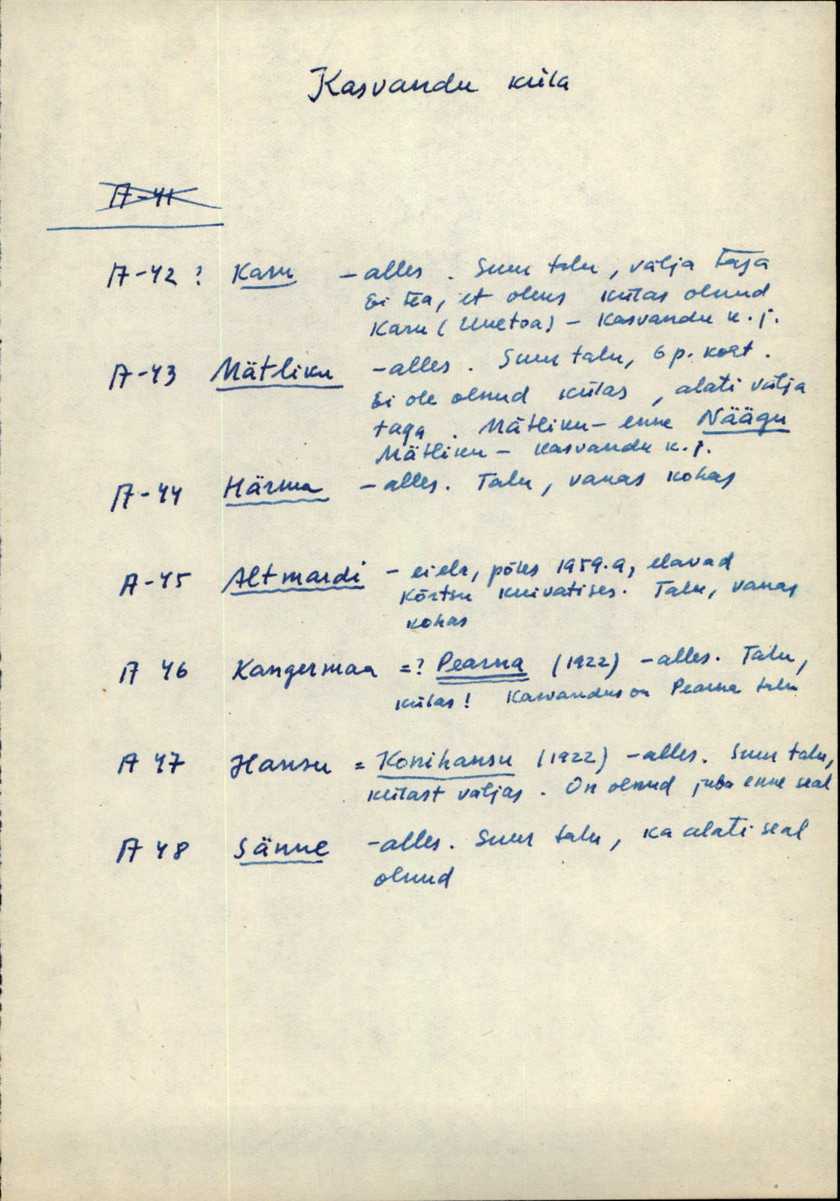 Kasvandu küla
A-41
A-42 ? Karu - alles. Suur talu, välja taga
Ei tea, et oleks külas olnud
Karu (Uuetoa) - Kasvandu k.j.
A-43 Mätliku - alles. Suur talu, 6 p. koht.
Ei ole olnud külas, alati välja
taga. Mätliku - enne Näägu
Mätliku - Kasvandu k.j.
A-44 Härma - alles. Talu, vanas kohas
A-45 Altmardi - ei ela, põles 1959.a, elavad
Kõrtsu kuivatises. Talu, vanas
kohas
A 46 Kangermaa =? Pearna (1922) - alles. Talu,
külas! Kasvandus on Pearna talu
A 47 Hansu = Konihansu (1922) - alles. Suur talu,
külast väljas. On olnud juba enne seal
A 48 Sänne - alles. Suur talu, ka alati seal
olnud